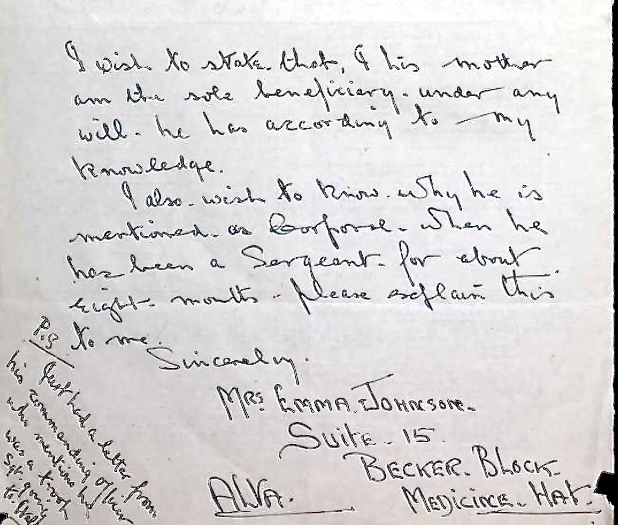 I wish to state that, I his mother
am the sole beneficiary under any
will he has according to my
knowledge.
I also wish to know why he is
mentioned as Corporal when he
has been a Sergeant for about
eight months - Please explain this
to me.
Sincerely.
Mrs EMMA JOHNSON.
SUITE - 15
BECKER - BLOCK
MEDICINE - HAT.
ALTA.
P.S Just had a letter from
his commanding officer
who mentions he
was a troop
Sgt going
to